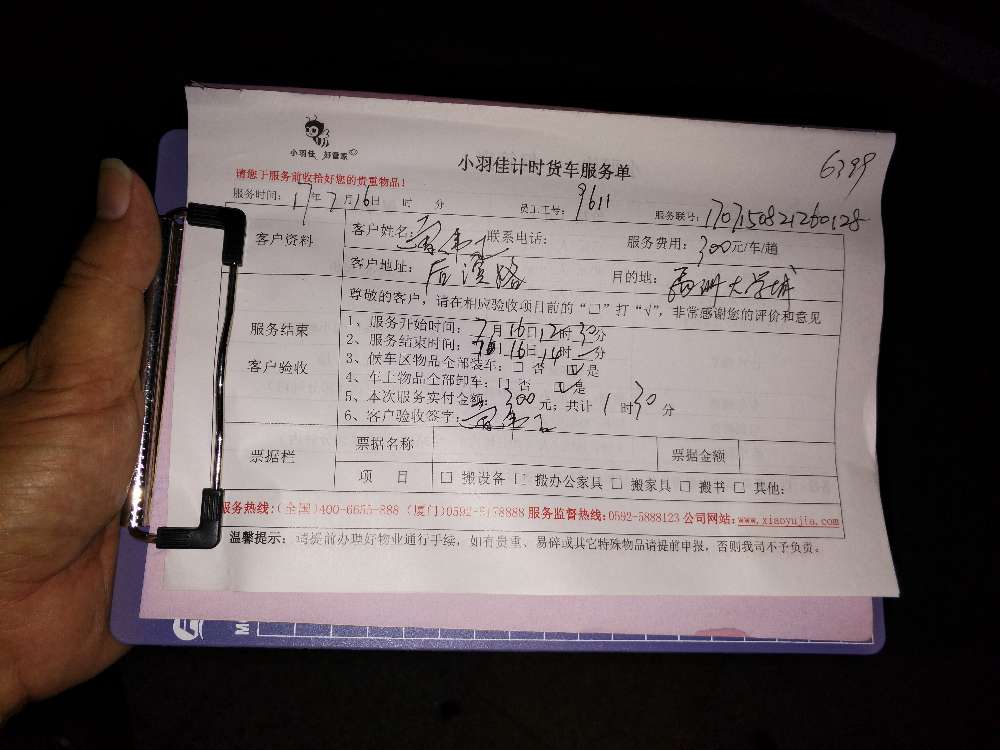 小羽佳 好管家
小羽佳计时货车服务单
6799
请您于服务前收拾好您的贵重物品!
服务时间: 17年7月16日 时 分 员工工号: 9611 服务联号: 1707150821260128
客户资料
客户姓名: 联系电话: 服务费用: 300元/车/趟
客户地址: 后滨路 目的地: 禹洲大学城
尊敬的客户,请在相应验收项目前的“□”打“√”,非常感谢您的评价和意见
服务结束
客户验收
1、服务开始时间: 7月16日12时30分
2、服务结束时间: 7月16日14时 分
3、候车区物品全部装车: □ 否 ☑是
4、车上物品全部卸车: □ 否 ☑是
5、本次服务实付金额: 300元; 共计 1 时30分
6、客户验收签字:
票据栏
票据名称 票据金额
项 目 □ 搬设备 □ 搬办公家具 □ 搬家具 □ 搬书 □ 其他:
服务热线:(全国)400-6655-888 (厦门)0592-5 38888 服务监督热线:0592-5888123 公司网站:www.xiaoyujia.com
温馨提示: 请提前办理好物业通行手续,如有贵重、易碎或其它特殊物品请提前申报,否则我司不予负责。